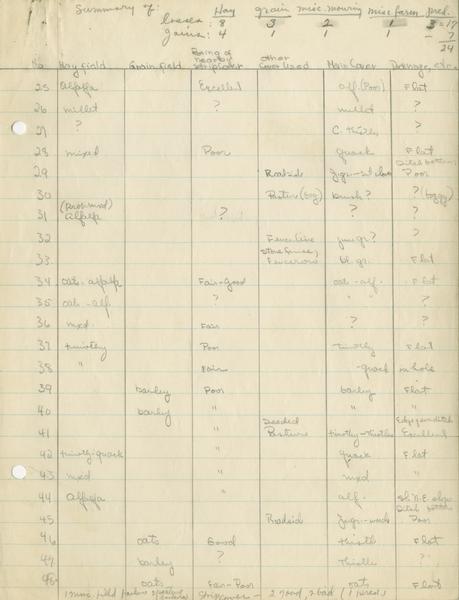 Summary of: Hay grain misc. mowing misc farm pred.
losses: 8 3 2 1 3 = 17
gains: 4 1 1 1 - 7
24
No. Hay field Grain field Being of nearby stripcover other Cover Used Main Cover Drainage, etc.
25 Alfalfa Excellent alf. (Poor) Flat
26 millet ? millet ?
27 ? C. thistle ?
28 mixed Poor quack Flat
Ditch bottom
29 Roadside Poor
30 Pasture (bog) brush? ? (boggy)
31 (Prob. mxd) Alfalfa ? ? ?
32 Fence line June gr.? ?
33 Stone fence, Fencerow bl. gr. Flat
34 oats-alfalfa Fair-Good oat-alf. Flat
35 oats-alf. ? " ?
36 mxd. Fair ? ?
37 timothy Poor timothy Flat
38 " Fair quack in hole
39 barley Poor barley Flat
40 barley " " "
41 Seeded Pasture timothy-thistles Excellent
42 timothy-quack " quack Flat
43 mxd " mxd "
44 Alfalfa " alf. sl. N.E. slope
Ditch bottom
45 Roadside Poor
46 oats Good thistle Flat
47 barley ? thistle ?
48 oats Fair-Poor oats Flat
1 misc. field stripcover - 2 good, 2 bad (1 pred.)